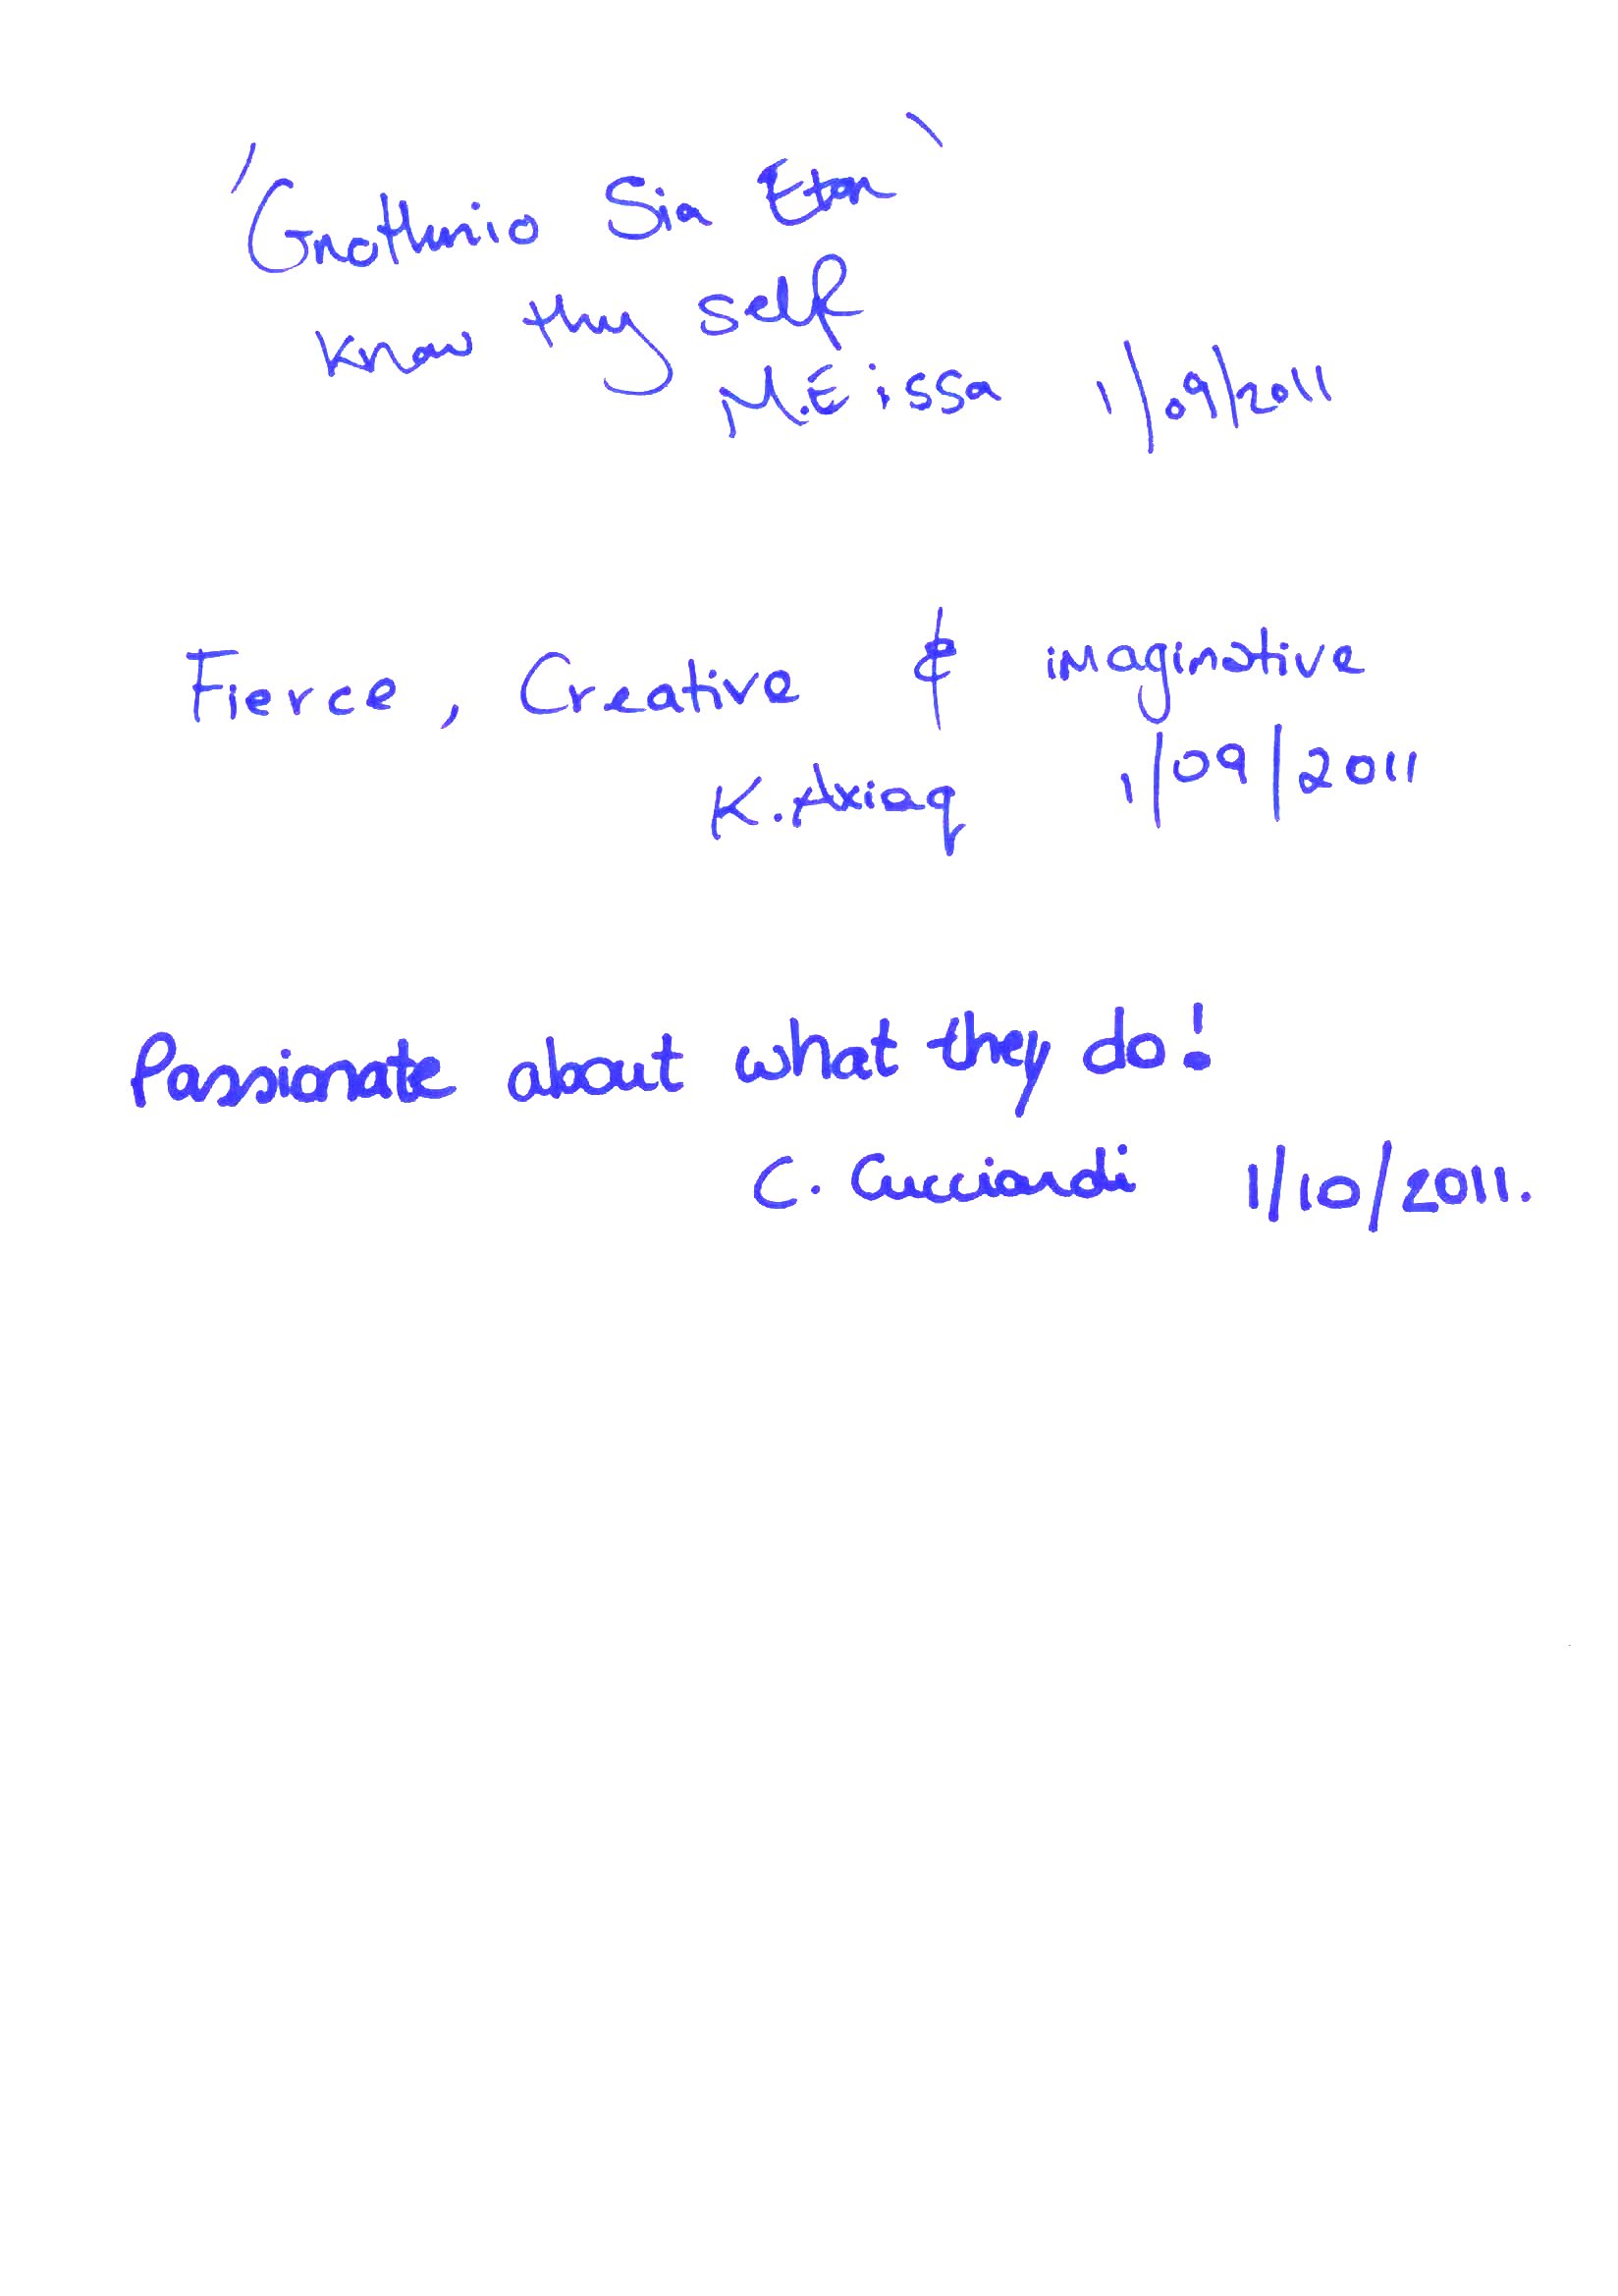 'Gnothinio Sia Eton'
Know thy self
M.Eissa 1/09/2011
Fierce, Creative & imaginative
K. Axiaq 1/09/2011
Passionate about what they do!
C. Cucciardi 1/10/2011.